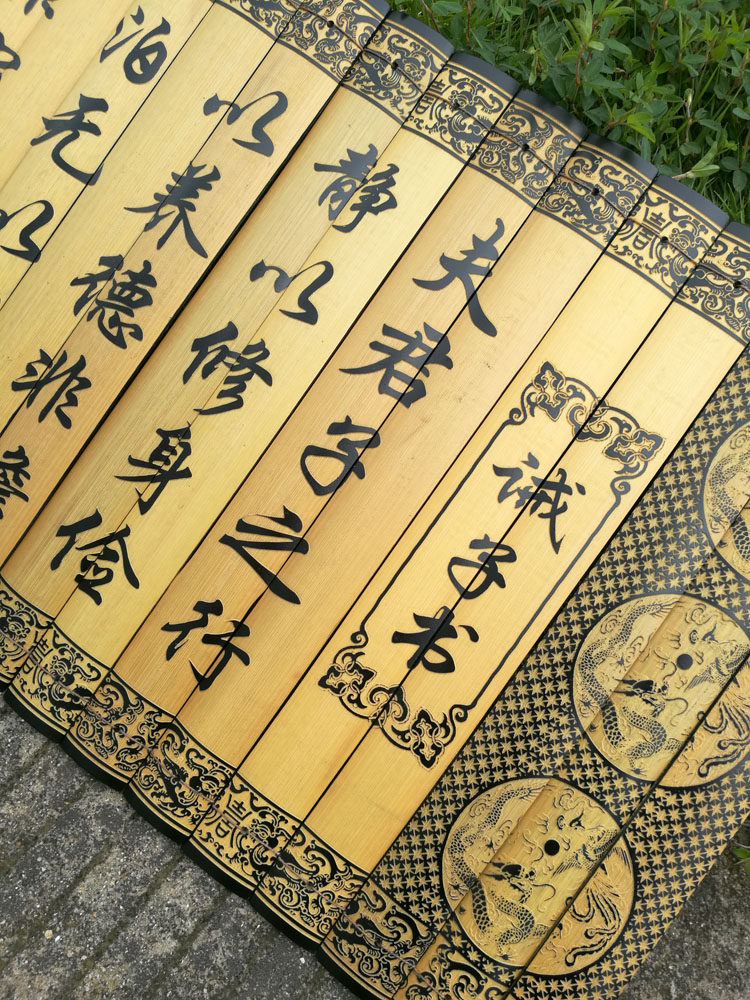 诫子书
夫君子之行
静以修身俭
以养德非
泊无以